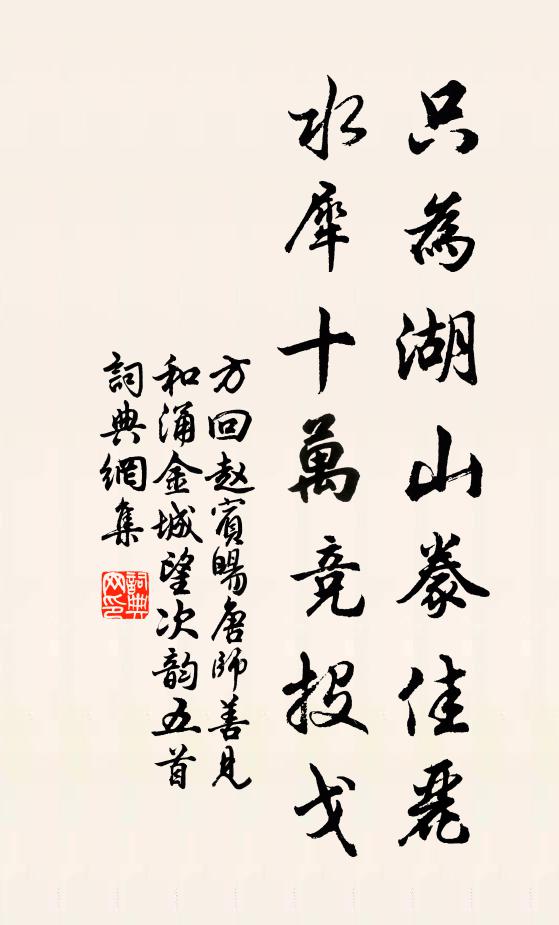 只為湖山豢佳麗
水犀十萬竞投戈
方回赵賓暘唐師善見
和涌金城望次韵五首
詞典網集
詞典网印